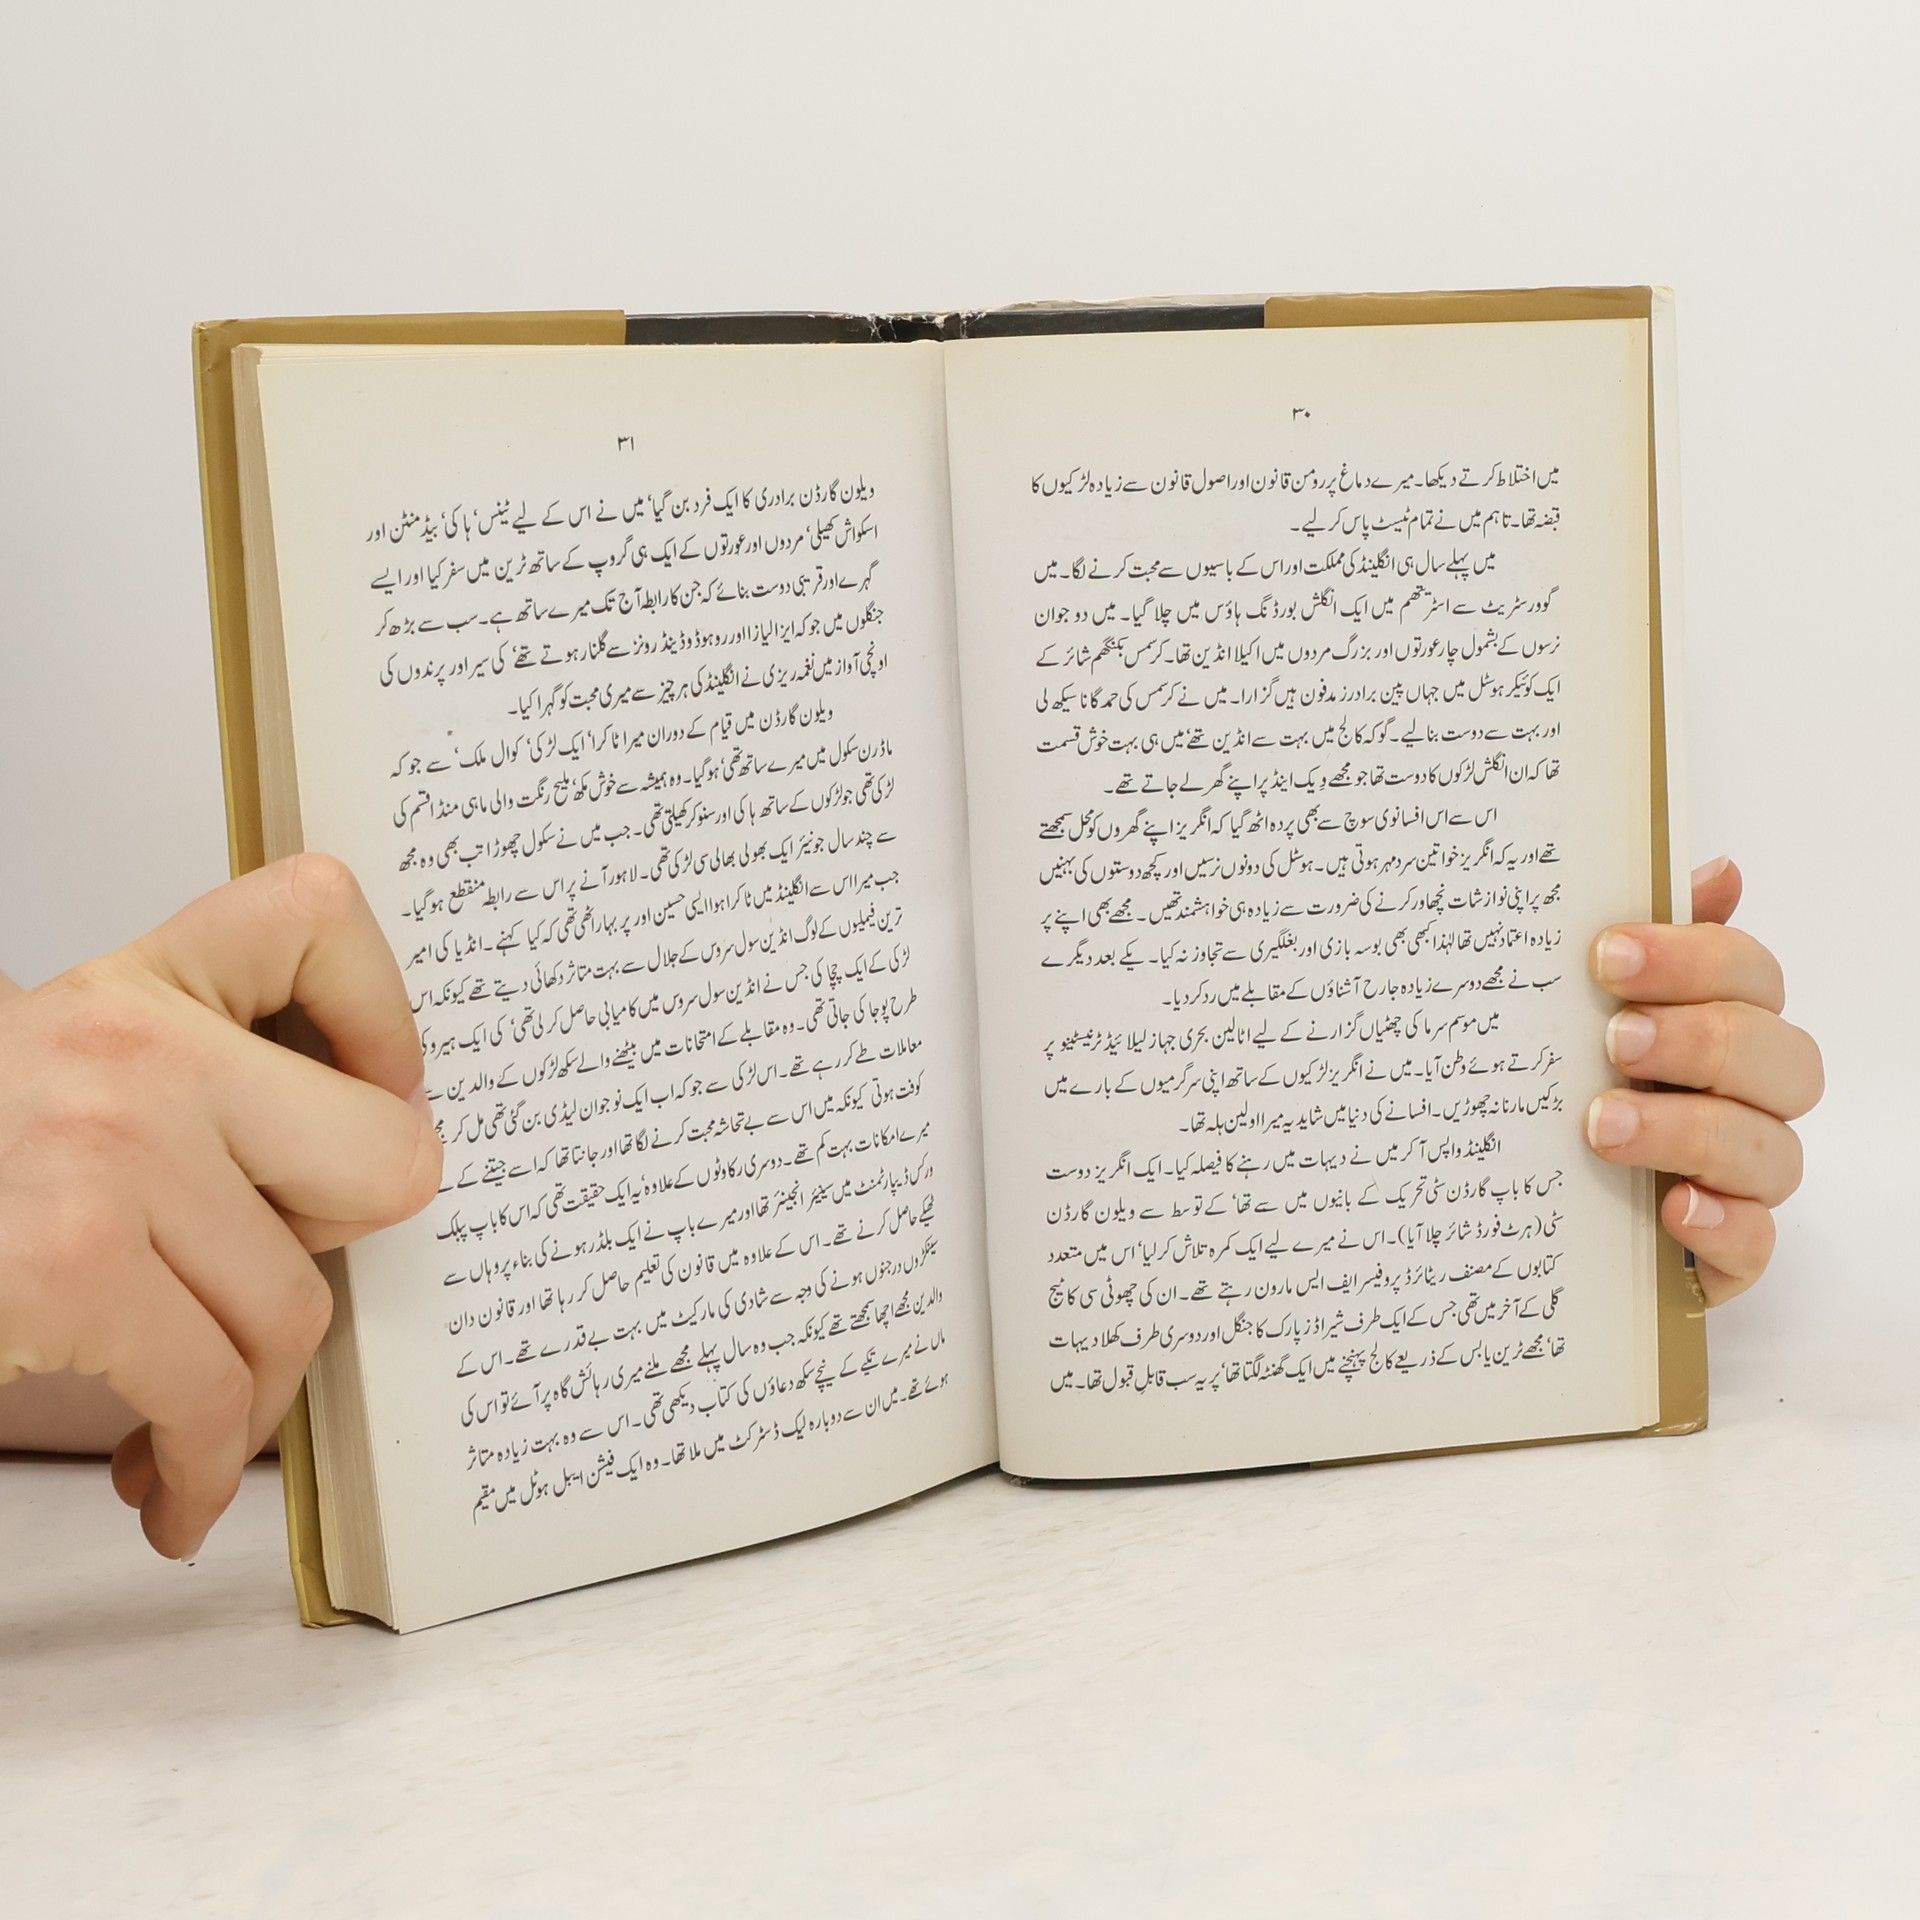 ۳۰
میں اختلاط کرتے دیکھا۔ میرے دماغ پر رومن قانون اور اصول قانون سے زیادہ لڑکیوں کا
قبضہ تھا۔ تاہم میں نے تمام ٹیسٹ پاس کر لیے۔
میں پہلے سال ہی انگلینڈ کی مملکت اور اس کے باسیوں سے محبت کرنے لگا۔ میں
گوور سٹریٹ سے اسٹرتھم میں ایک انگلش بورڈنگ ہاؤس میں چلا گیا۔ میں دو جوان
نرسوں کے بشمول چار عورتوں اور بزرگ مردوں میں اکیلا انڈین تھا۔ کرسمس بکنگھم شائر کے
ایک کوئیکر ہوسٹل میں جہاں پین برادرز مدفون ہیں گزارا۔ میں نے کرسمس کی حمد گانا سیکھ لی
اور بہت سے دوست بنا لیے۔ گو کہ کالج میں بہت سے انڈین تھے‘ میں ہی بہت خوش قسمت
تھا کہ ان انگلش لڑکوں کا دوست تھا جو مجھے ویک اینڈ پر اپنے گھر لے جاتے تھے۔
اس سے اس افسانوی سوچ سے بھی پردہ اٹھ گیا کہ انگریز اپنے گھروں کو محل سمجھتے
تھے اور یہ کہ انگریز خواتین سرد مہر ہوتی ہیں۔ ہوسٹل کی دونوں نرسیں اور کچھ دوستوں کی بہنیں
مجھ پر اپنی نوازشات نچھاور کرنے کی ضرورت سے زیادہ ہی خواہشمند تھیں۔ مجھے بھی اپنے پر
زیادہ اعتماد نہیں تھا لہٰذا کبھی بھی بوسہ بازی اور بغلگیری سے تجاوز نہ کیا۔ یکے بعد دیگرے
سب نے مجھے دوسرے زیادہ جارح آشناؤں کے مقابلے میں رد کر دیا۔
میں موسم سرما کی چھٹیاں گزارنے کے لیے اٹالین بحری جہاز لیلائیڈ ٹرنیسٹینو پر
سفر کرتے ہوئے وطن آیا۔ میں نے انگریز لڑکیوں کے ساتھ اپنی سرگرمیوں کے بارے میں
بڑکیں مارنا نہ چھوڑیں۔ افسانے کی دنیا میں شاید یہ میرا اولین ہلہ تھا۔
انگلینڈ واپس آ کر میں نے دیہات میں رہنے کا فیصلہ کیا۔ ایک انگریز دوست
جس کا باپ گارڈن سٹی تحریک کے بانیوں میں سے تھا‘ کے توسط سے ویلون گارڈن
سٹی (ہرٹ فورڈ شائر چلا آیا)۔ اس نے میرے لیے ایک کمرہ تلاش کر لیا‘ اس میں متعدد
کتابوں کے مصنف ریٹائرڈ پروفیسر ایف ایس مارون رہتے تھے۔ ان کی چھوٹی سی کاٹیج
گلی کے آخر میں تھی جس کے ایک طرف شیراڈز پارک کا جنگل اور دوسری طرف کھلا دیہات
تھا‘ مجھے ٹرین یا بس کے ذریعے کالج پہنچنے میں ایک گھنٹہ لگتا تھا‘ پر یہ سب قابلِ قبول تھا۔ میں
۳۱
ویلون گارڈن برادری کا ایک فرد بن گیا‘ میں نے اس کے لیے ٹینس‘ ہاکی‘ بیڈ منٹن اور
اسکواش کھیلی‘ مردوں اور عورتوں کے ایک ہی گروپ کے ساتھ ٹرین میں سفر کیا اور ایسے
گہرے اور قریبی دوست بنائے کہ جن کا رابطہ آج تک میرے ساتھ ہے۔ سب سے بڑھ کر
جنگلوں میں جو کہ ایزالیازا اور روہوڈوڈینڈرونز سے گلنار ہوتے تھے‘ کی سیر اور پرندوں کی
اونچی آواز میں نغمہ ریزی نے انگلینڈ کی ہر چیز سے میری محبت کو گہرا کیا۔
ویلون گارڈن میں قیام کے دوران میرا ٹاکرا‘ ایک لڑکی‘ کوال ملک‘ سے جو کہ
ماڈرن سکول میں میرے ساتھ تھی‘ ہو گیا۔ وہ ہمیشہ سے خوش مکھ‘ ملیح رنگت والی ماہی منڈا قسم کی
لڑکی تھی جو لڑکوں کے ساتھ ہاکی اور سنوکر کھیلتی تھی۔ جب میں نے سکول چھوڑا تب بھی وہ مجھ
سے چند سال جونیئر ایک بھولی بھالی سی لڑکی تھی۔ لاہور آنے پر اس سے رابطہ منقطع ہو گیا۔
جب میرا اس سے انگلینڈ میں ٹاکرا ہوا ایسی حسین اور پر بہار اٹھی تھی کہ کیا کہنے۔ انڈیا کی امیر
ترین فیملیوں کے لوگ انڈین سول سروس کے جلال سے بہت متاثر دکھائی دیتے تھے کیونکہ اس
لڑکی کے ایک چچا کی جس نے انڈین سول سروس میں کامیابی حاصل کر لی تھی‘ کی ایک ہیرو کی
طرح پوجا کی جاتی تھی۔ وہ مقابلے کے امتحانات میں بیٹھنے والے سکھ لڑکوں کے والدین سے
معاملات طے کر رہے تھے۔ اس لڑکی سے جو کہ اب ایک نوجوان لیڈی بن گئی تھی مل کر
کوفت ہوتی کیونکہ میں اس سے بے تحاشہ محبت کرنے لگا تھا اور جانتا تھا کہ اسے جیتنے کے
میرے امکانات بہت کم تھے۔ دوسری رکاوٹوں کے علاوہ‘ یہ ایک حقیقت تھی کہ اس کا باپ پبلک
ورکس ڈیپارٹمنٹ میں سینیئر انجینئر تھا اور میرے باپ نے ایک بلڈر ہونے کی بناء پر وہاں سے
ٹھیکے حاصل کرنے تھے۔ اس کے علاوہ میں قانون کی تعلیم حاصل کر رہا تھا اور قانون دان
سینکڑوں درجنوں ہونے کی وجہ سے شادی کی مارکیٹ میں بہت بے قدرے تھے۔ اس کے
والدین مجھے اچھا سمجھتے تھے کیونکہ جب وہ سال پہلے مجھے ملنے میری رہائش گاہ پر آئے تو اس کی
ماں نے میرے تکیے کے نیچے سکھ دعاؤں کی کتاب دیکھی تھی۔ اس سے وہ بہت زیادہ متاثر
ہوئے تھے۔ میں ان سے دوبارہ لیک ڈسٹرکٹ میں ملا تھا۔ وہ ایک فیشن ایبل ہوٹل میں مقیم